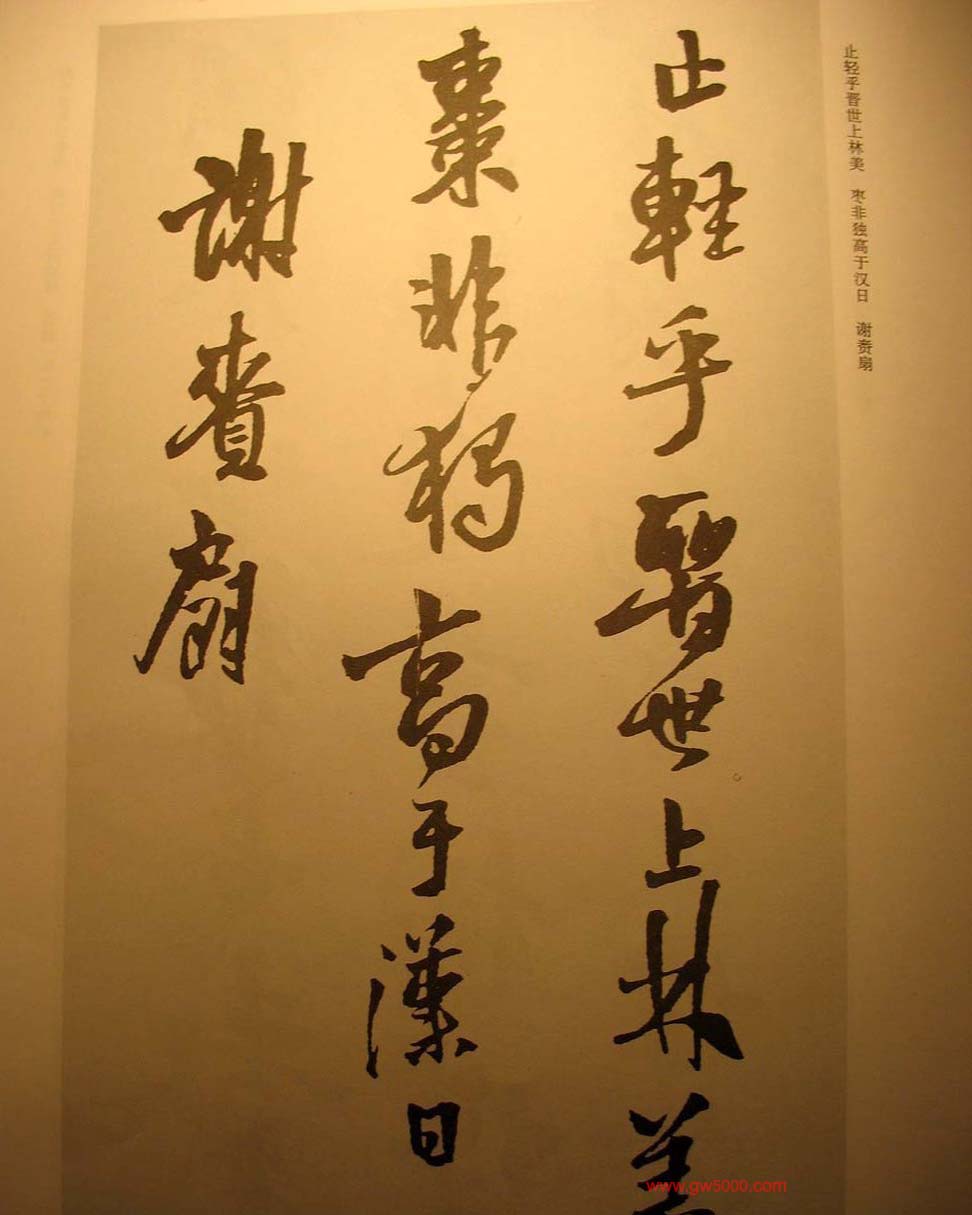 止轻乎晋世上林美　枣非独高于汉日　谢赉扇
止輕乎晉世上林美
棗非獨高于漢日
謝賚扇
www.gw5000.com